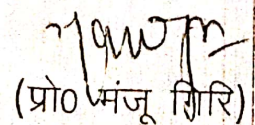 (प्रो० मंजू गिरि)